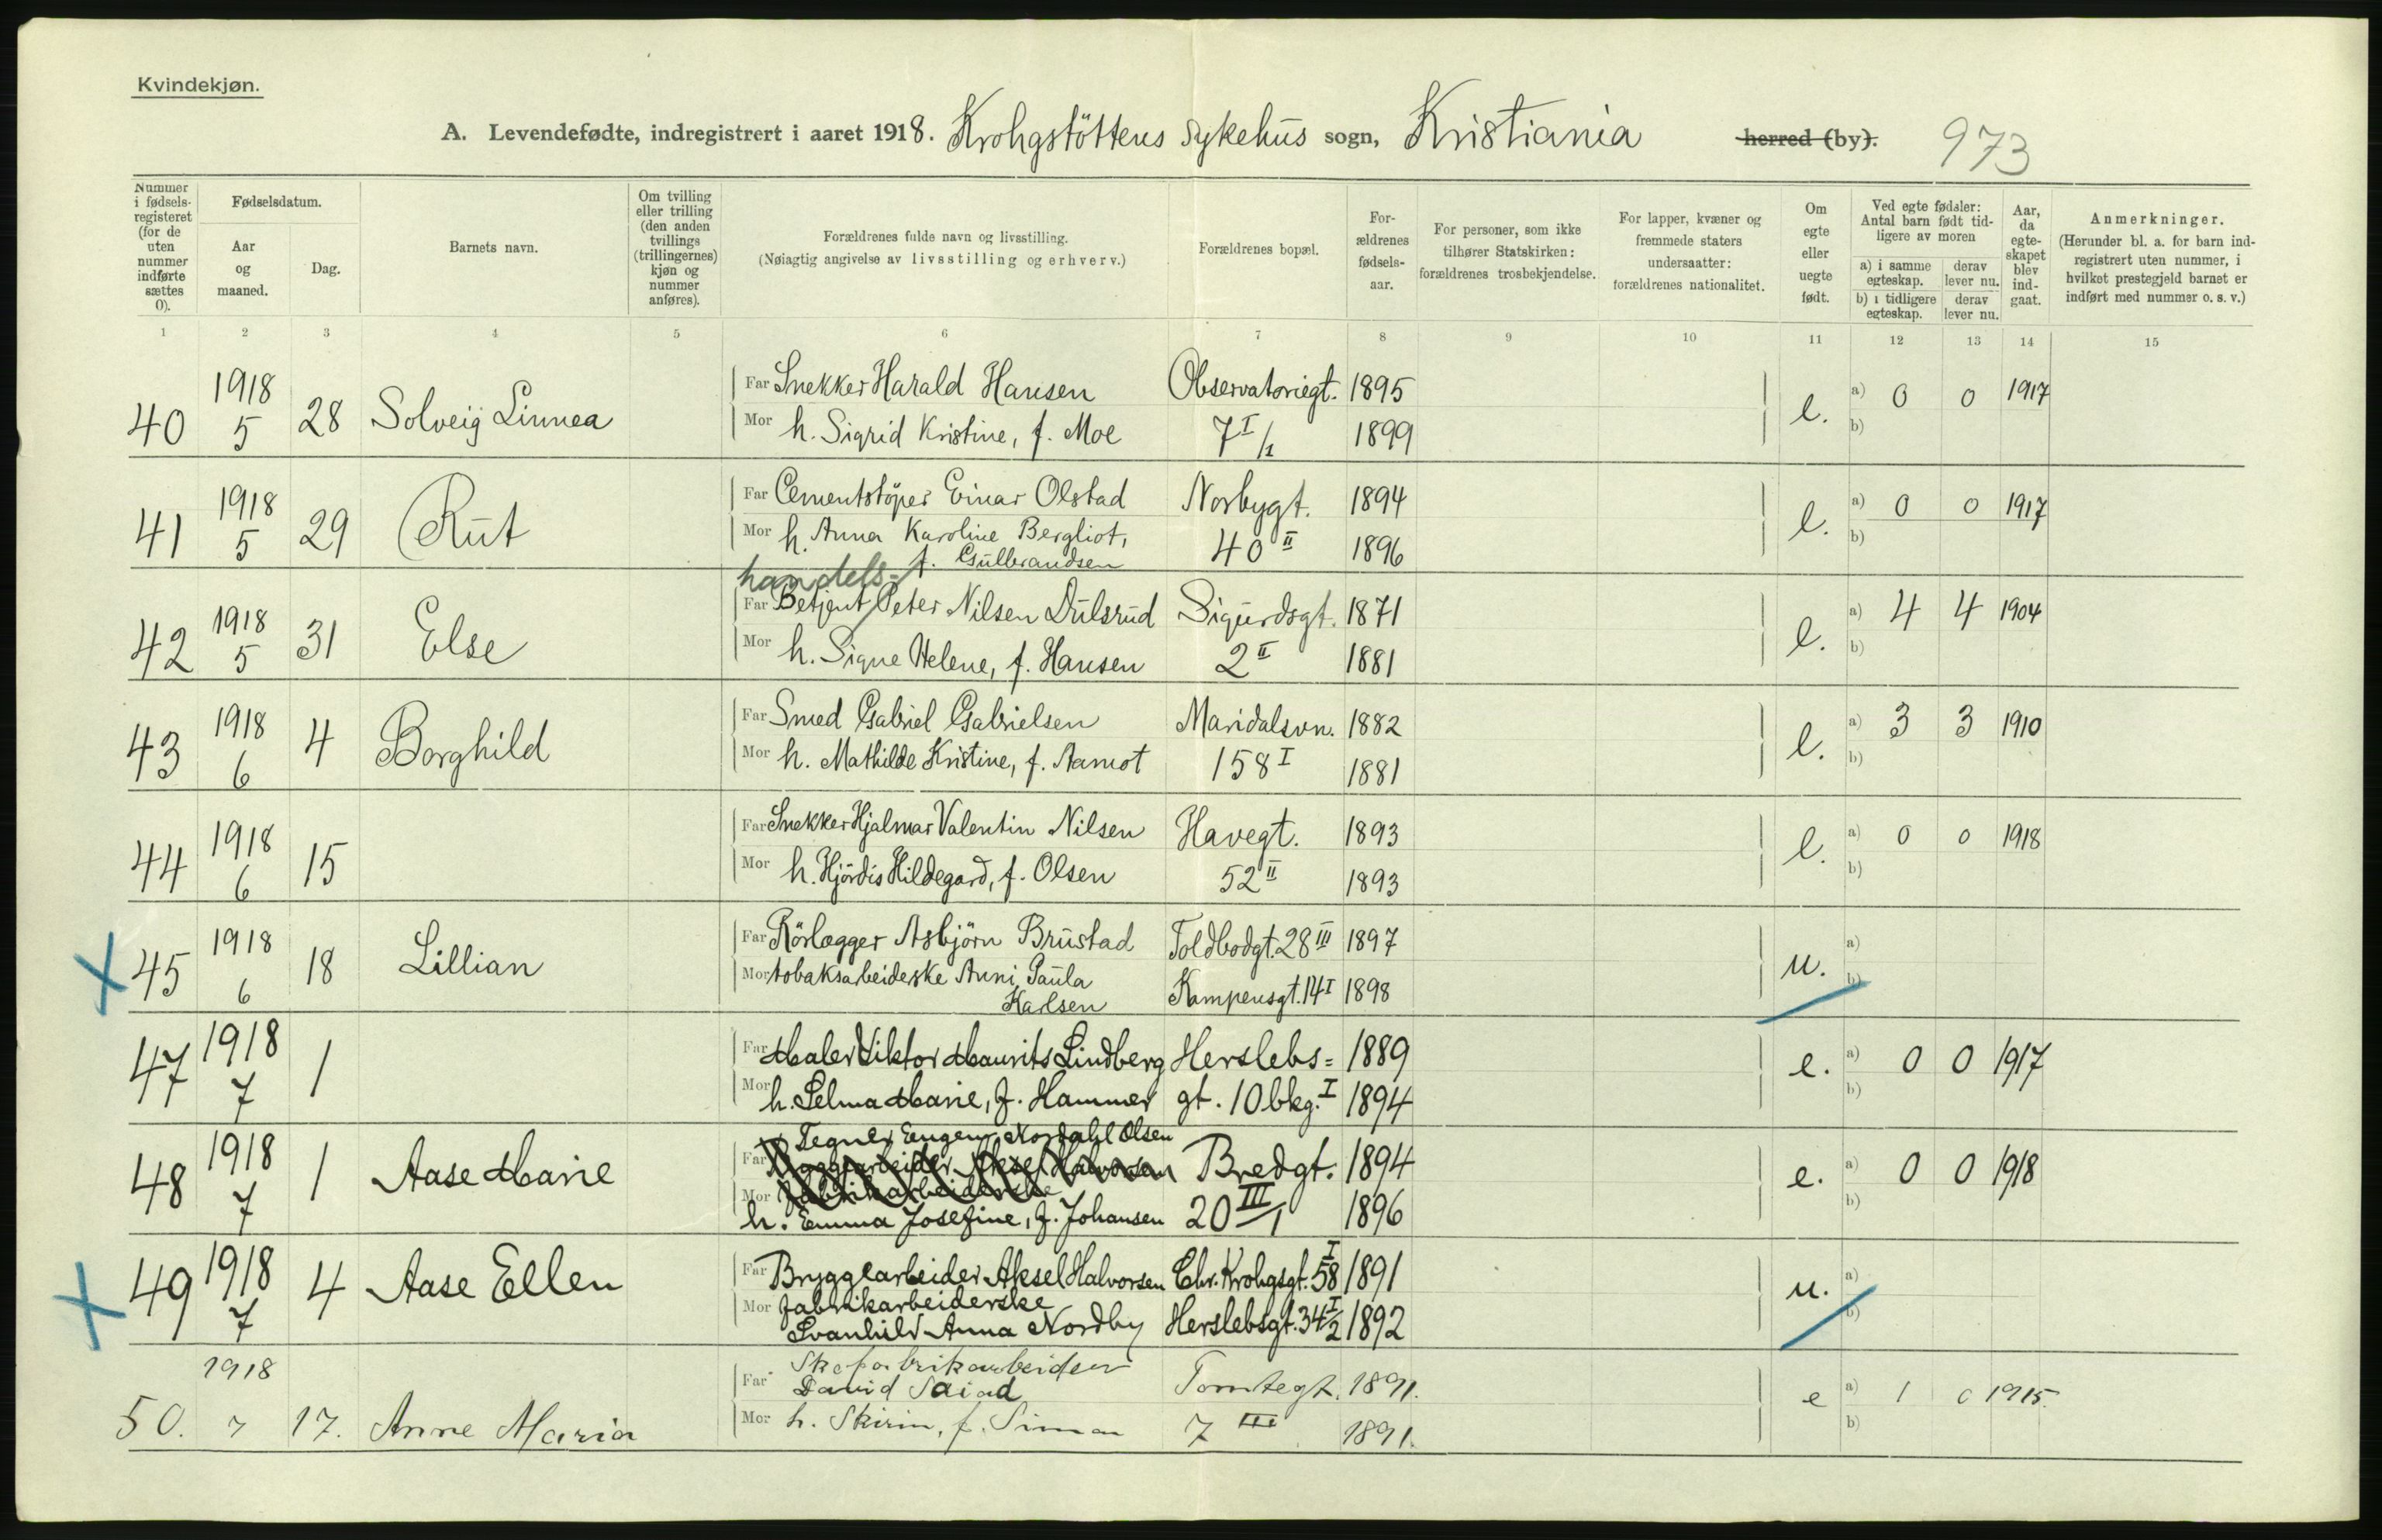 Kvindekjøn.
A. Levendefødte, indregistrert i aaret 1918. Krohgstöttens Sykehus sogn, Kristiania herred (by). 973
Nummer i fødsels-registeret (for de uten nummer indførte sættes 0).
Fødselsdatum.
Aar og maaned.
Dag.
Barnets navn.
Om tvilling eller trilling (den anden tvillings (trillingernes) kjøn og nummer anføres).
Forældrenes fulde navn og livsstilling.
(Nøiagtig angivelse av livsstilling og erhverv.)
Forældrenes bopæl.
For-ældrenes fødsels-aar.
For personer, som ikke tilhører Statskirken: forældrenes trosbekjendelse.
For lapper, kvæner og fremmede staters undersaatter: forældrenes nationalitet.
Om egte eller uegte født.
Ved egte fødsler: Antal barn født tid-ligere av moren
a) i samme egteskap. derav lever nu.
b) i tidligere egteskap. derav lever nu.
Aar, da egte-skapet blev ind-gaat.
Anmerkninger.
(Herunder bl. a. for barn ind-registrert uten nummer, i hvilket prestegjeld barnet er indført med nummer o. s. v.)
1 2 3 4 5 6 7 8 9 10 11 12 13 14 15
1918 Far Snekker Harald Hansen Observatoriegt. 1895 a) 0 0 1917
40 5 28 Solveig Linnea Mor h. Sigrid Kristine, f. Moe 7 I/1 1899 e. b)
1918 Far Cementstöper Einar Olstad Norbygt. 1894 a) 0 0 1917
41 5 29 Rut Mor h. Anna Karoline Bergliot, 40 II 1896 e. b)
f. Gulbrandsen
handels=
1918 Far Betjent Peter Nilsen Dulsrud Sigurdsgt. 1871 a) 4 4 1904
42 5 31 Else Mor h. Signe Helene, f. Hansen 2 II 1881 e. b)
1918 Far Smed Gabriel Gabrielsen Maridalsvn. 1882 a) 3 3 1910
43 6 4 Borghild Mor h. Mathilde Kristine, f. Aamot 158 I 1881 e. b)
1918 Far Snekker Hjalmar Valentin Nilsen Havegt. 1893 a) 0 0 1918
44 6 15 Mor h. Hjördis Hildegard, f. Olsen 52 II 1893 e. b)
1918 Far Rörlægger Asbjörn Brustad Toldbodgt. 28 III 1897 a)
X 45 6 18 Lillian Mor tobaksarbeiderske Anni Paula Kampensgt. 14 I 1898 u. b)
Karlsen
1918 Far Maler Viktor Maurits Lindberg Herslebs= 1889 a) 0 0 1917
47 7 1 Mor h. Selma Marie, f. Hammer gt. 10 bkg. I 1894 e. b)
Tegner Eugen Nordahl Olsen
1918 Far Bryggearbeider Aksel Halvorsen Bredgt. 1894 a) 0 0 1918
48 7 1 Aase Marie Mor fabrikarbeiderske 20 III/1 1896 e. b)
h. Emma Josefine, f. Johansen
1918 Far Bryggearbeider Aksel Halvorsen Chr. Krohgsgt. 58 I 1891 a)
X 49 7 4 Aase Ellen Mor fabrikarbeiderske u. b)
Svanhild Anna Nordby Herslebsgt. 34 I/2 1892
1918 Skofabrikarbeider
Far David Saiad Tomtegt. 1891. a) 1 0 1915.
50. 7 17. Anne Maria Mor h. Skirin, f. Simon 7 III 1891. e b)